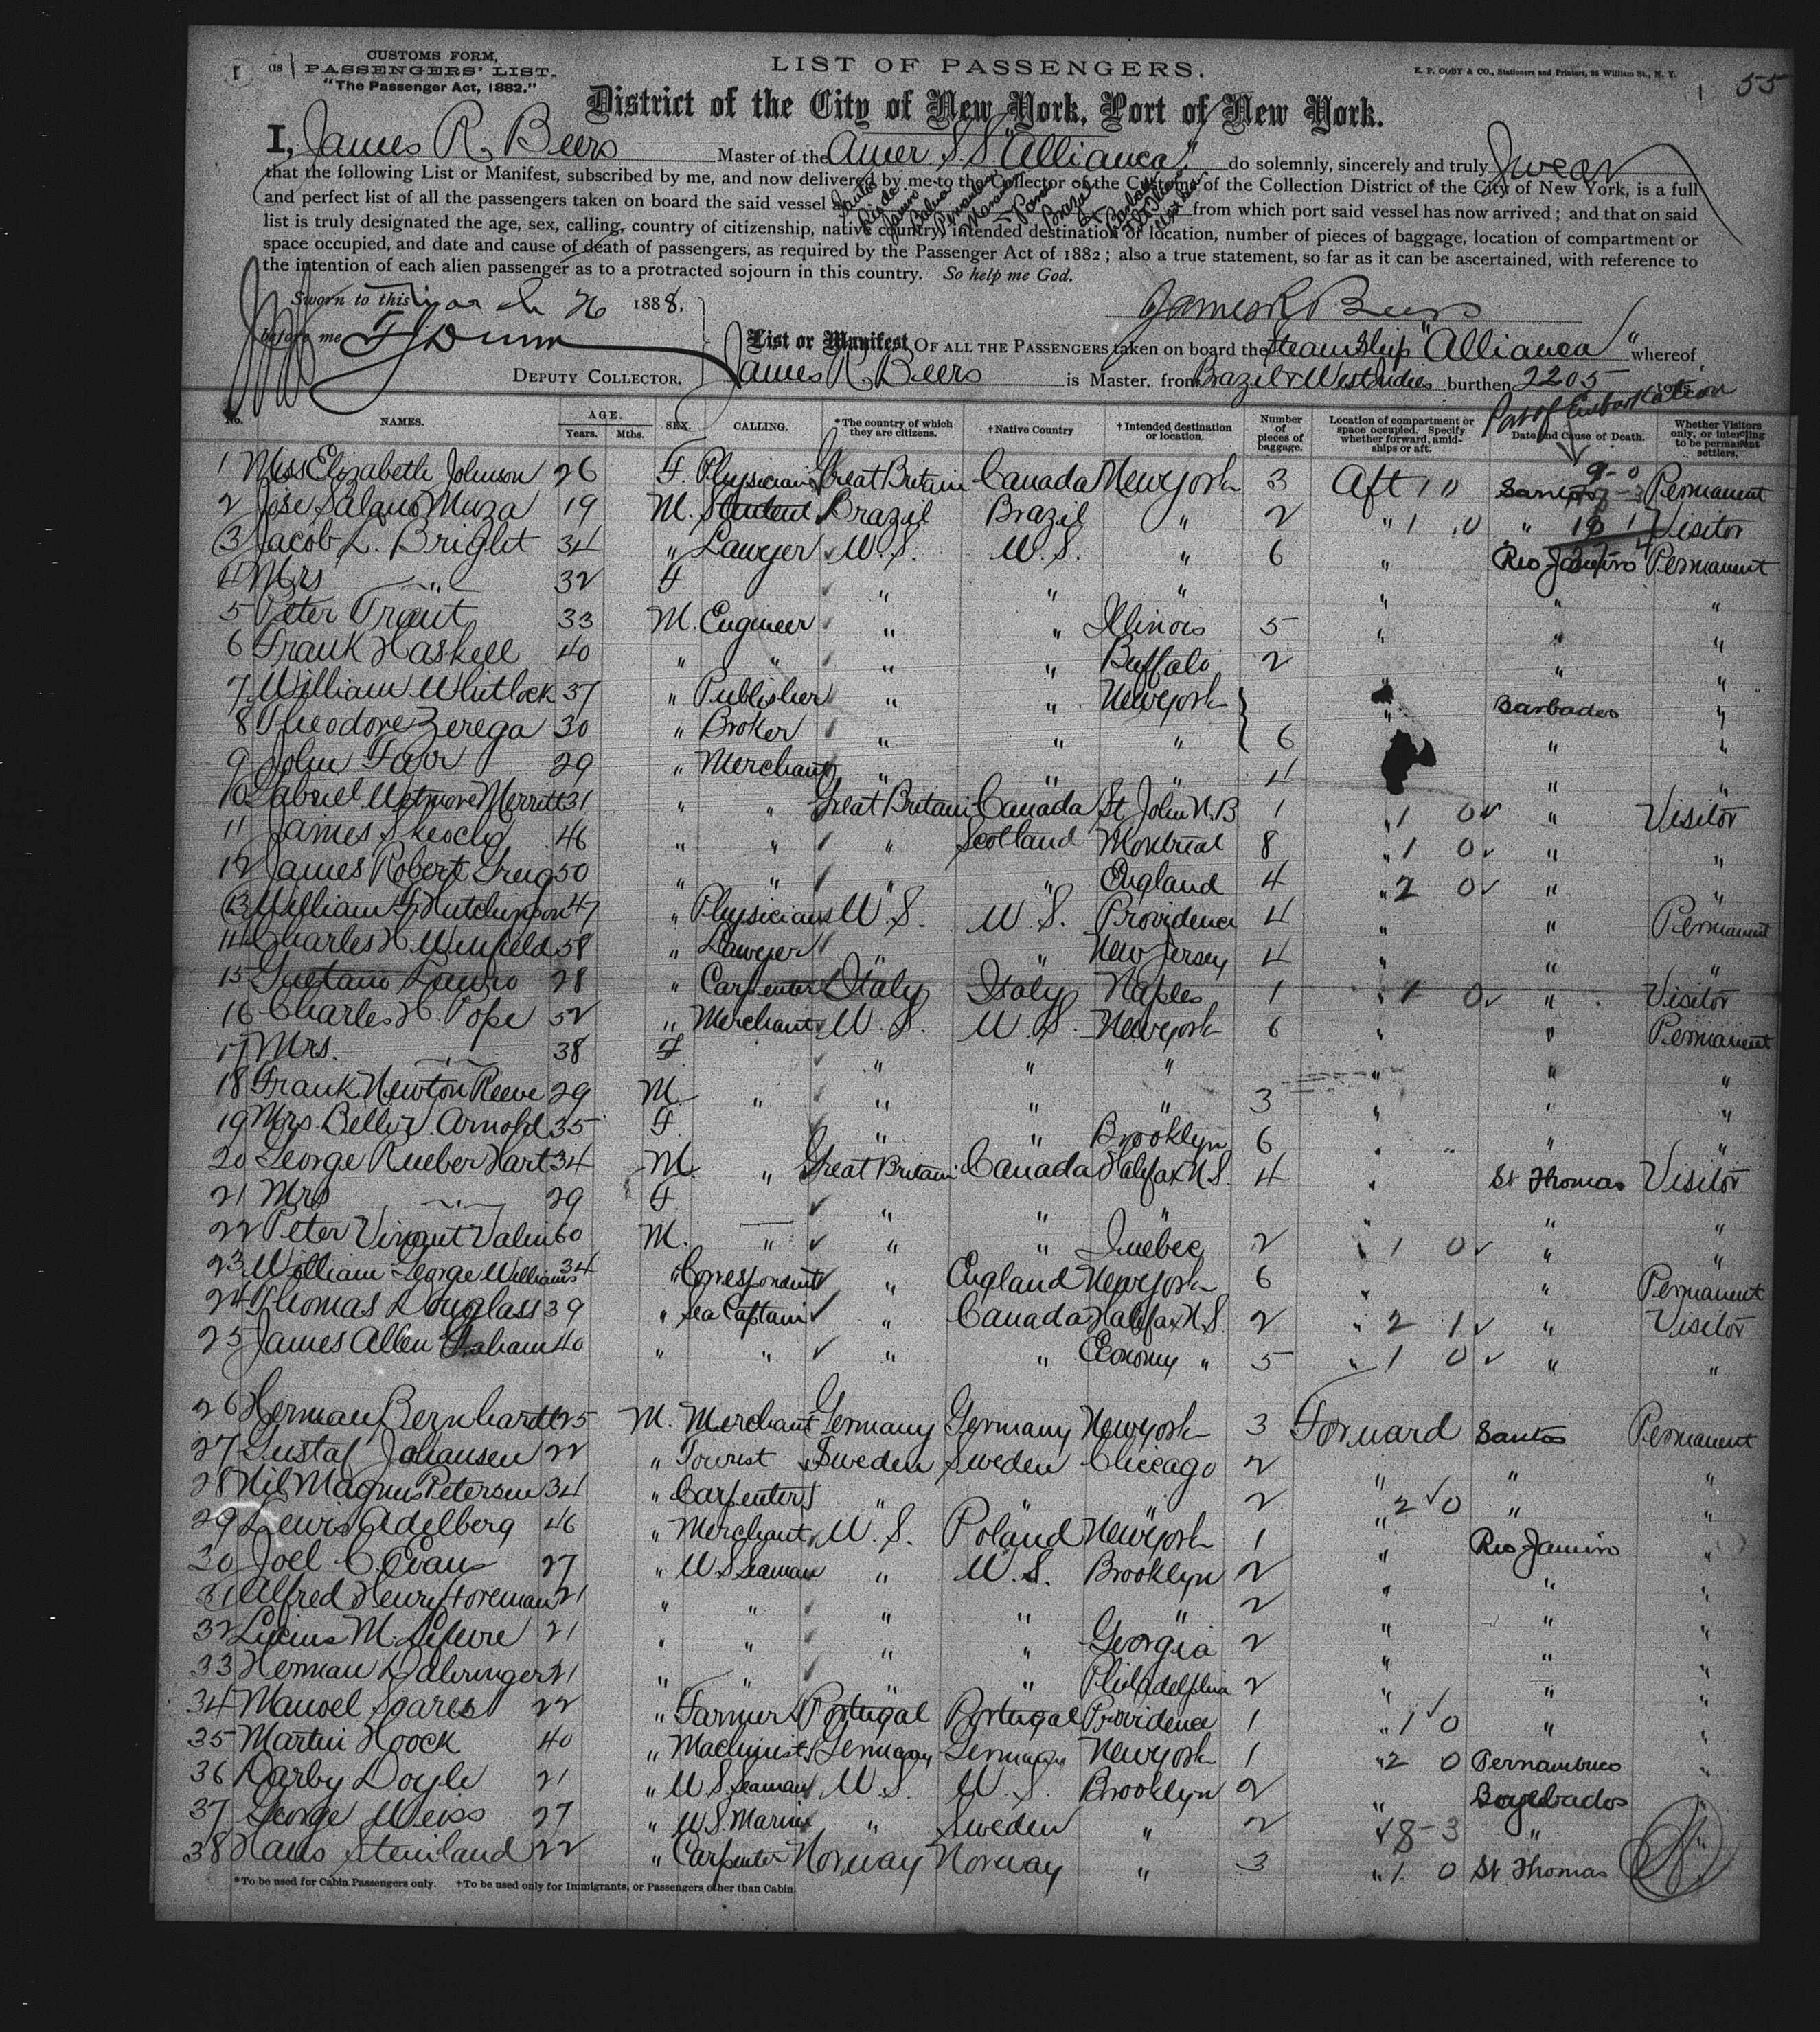 CUSTOMS FORM,
PASSENGERS' LIST.
"The Passenger Act, 1882."
LIST OF PASSENGERS.
E. P. COBY & CO., Stationers and Printers, 36 William St., N. Y.
55
District of the City of New York, Port of New York.
I, James R. Beers Master of the Amer. S.S. "Allianca" do solemnly, sincerely and truly Swear
that the following List or Manifest, subscribed by me, and now delivered by me to the Collector of the Customs of the Collection District of the City of New York, is a full
and perfect list of all the passengers taken on board the said vessel at Santos Rio de Janeiro Bahia Pernambuco Maranham Para Brazil Barbados St Thomas from which port said vessel has now arrived; and that on said
list is truly designated the age, sex, calling, country of citizenship, native country, intended destination or location, number of pieces of baggage, location of compartment or
space occupied, and date and cause of death of passengers, as required by the Passenger Act of 1882; also a true statement, so far as it can be ascertained, with reference to
the intention of each alien passenger as to a protracted sojourn in this country. So help me God.
Sworn to this March 26 1888,
James R Beers
before me F J Dunn
DEPUTY COLLECTOR.
List or Manifest OF ALL THE PASSENGERS taken on board the Steamship "Allianca" whereof
James R. Beers is Master, from Brazil & West Indies burthen 2205 tons.
Port of Embarkation
No. NAMES. AGE. Years. Mths. SEX. CALLING. *The country of which they are citizens. †Native Country †Intended destination or location. Number of pieces of baggage. Location of compartment or space occupied. Specify whether forward, amidships or aft. Date and Cause of Death. Whether Visitors only, or intending to be permanent settlers.
1 Miss Elizabeth Johnson 26 F. Physician Great Britain Canada New York 3 Aft 1 0 Santos Permanent
2 José Salano Muza 19 M. Student Brazil Brazil " 2 " 1 0 " Visitor
3 Jacob L. Bright 34 " Lawyer U.S. U.S. " 6 " Rio Janeiro Permanent
4 Mrs " 32 F " " " " " "
5 Peter Traut 33 M. Engineer " " Illinois 5 " " "
6 Frank Haskell 40 " " " " Buffalo 2 " " "
7 William Whitlock 37 " Publisher " " New York } " Barbados "
8 Theodore Zerega 30 " Broker " " " 6 " "
9 John Farr 29 " Merchant " " " 4 " "
10 Gabriel Wetmore Merritt 31 " " Great Britain Canada St John N.B 1 " 1 0 " Visitor
11 James 46 " " " Scotland Montreal 8 " 1 0 " "
12 James Robert Greig 50 " " " " England 4 " 2 0 " "
13 William F Hutchinson 47 " Physician U.S. U.S. Providence 4 " " Permanent
14 Charles H. Winfield 58 " Lawyer " " New Jersey 4 " " "
15 Gaetano 28 " Carpenter Italy Italy Naples 1 " 1 0 " Visitor
16 Charles H. Pope 52 " Merchant U.S. U.S. New York 6 " " Permanent
17 Mrs. " 38 F " " " " " "
18 Frank Newton Reeve 29 M. " " " " 3 " " "
19 Mrs. Belle V. Arnold 35 F. " " Brooklyn 6 " " "
20 George Rueber Hart 34 M. " Great Britain Canada Halifax N.S. 4 " St Thomas Visitor
21 Mrs " 29 F. " " " " " "
22 Peter Vincent Valin 60 M. " " " Quebec 2 " 1 0 " "
23 William George Williams 34 " Correspondent " England New York 6 " " Permanent
24 Thomas Douglass 39 " Sea Captain " Canada Halifax N.S. 2 " 2 1 " Visitor
25 James Allen Graham 40 " " " " Economy " 5 " 1 0 " "
26 Herman Bernhardt 25 M. Merchant Germany Germany New York 3 Forward Santos Permanent
27 Gustaf Johansen 22 " Tourist Sweden Sweden Chicago 2 " " "
28 Nil Magnus Petersen 34 " Carpenter " " " 2 " 2 0 " "
29 Lewis Adelberg 46 " Merchant U.S. Poland New York 1 " Rio Janeiro "
30 Joel C. Evans 27 " U.S. Seaman " U.S. Brooklyn 2 " " "
31 Alfred Henry Foreman 21 " " " " " 2 " " "
32 Lucius M. Lefevre 21 " " " " Georgia 2 " " "
33 Herman Dahringer 21 " " " " Philadelphia 2 " " "
34 Manoel Soares 22 " Farmer Portugal Portugal Providence 1 " 1 0 " "
35 Martin Hoock 40 " Machinist Germany Germany New York 1 " 2 0 Pernambuco "
36 Darby Doyle 21 " U.S. Seaman U.S. U.S. Brooklyn 2 " Barbados
37 George Weiss 27 " U.S. Marine " Sweden " 2 48-3 " "
38 Hans Steniland 22 " Carpenter Norway Norway " 3 " 1 0 St Thomas
*To be used for Cabin Passengers only. †To be used only for Immigrants, or Passengers other than Cabin.